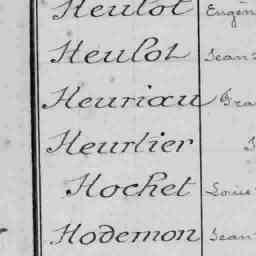 Heulot Eugèn
Heulot Jean
Heuriau Fra
Heurtier
Hochet Louis
Hodemon Jean